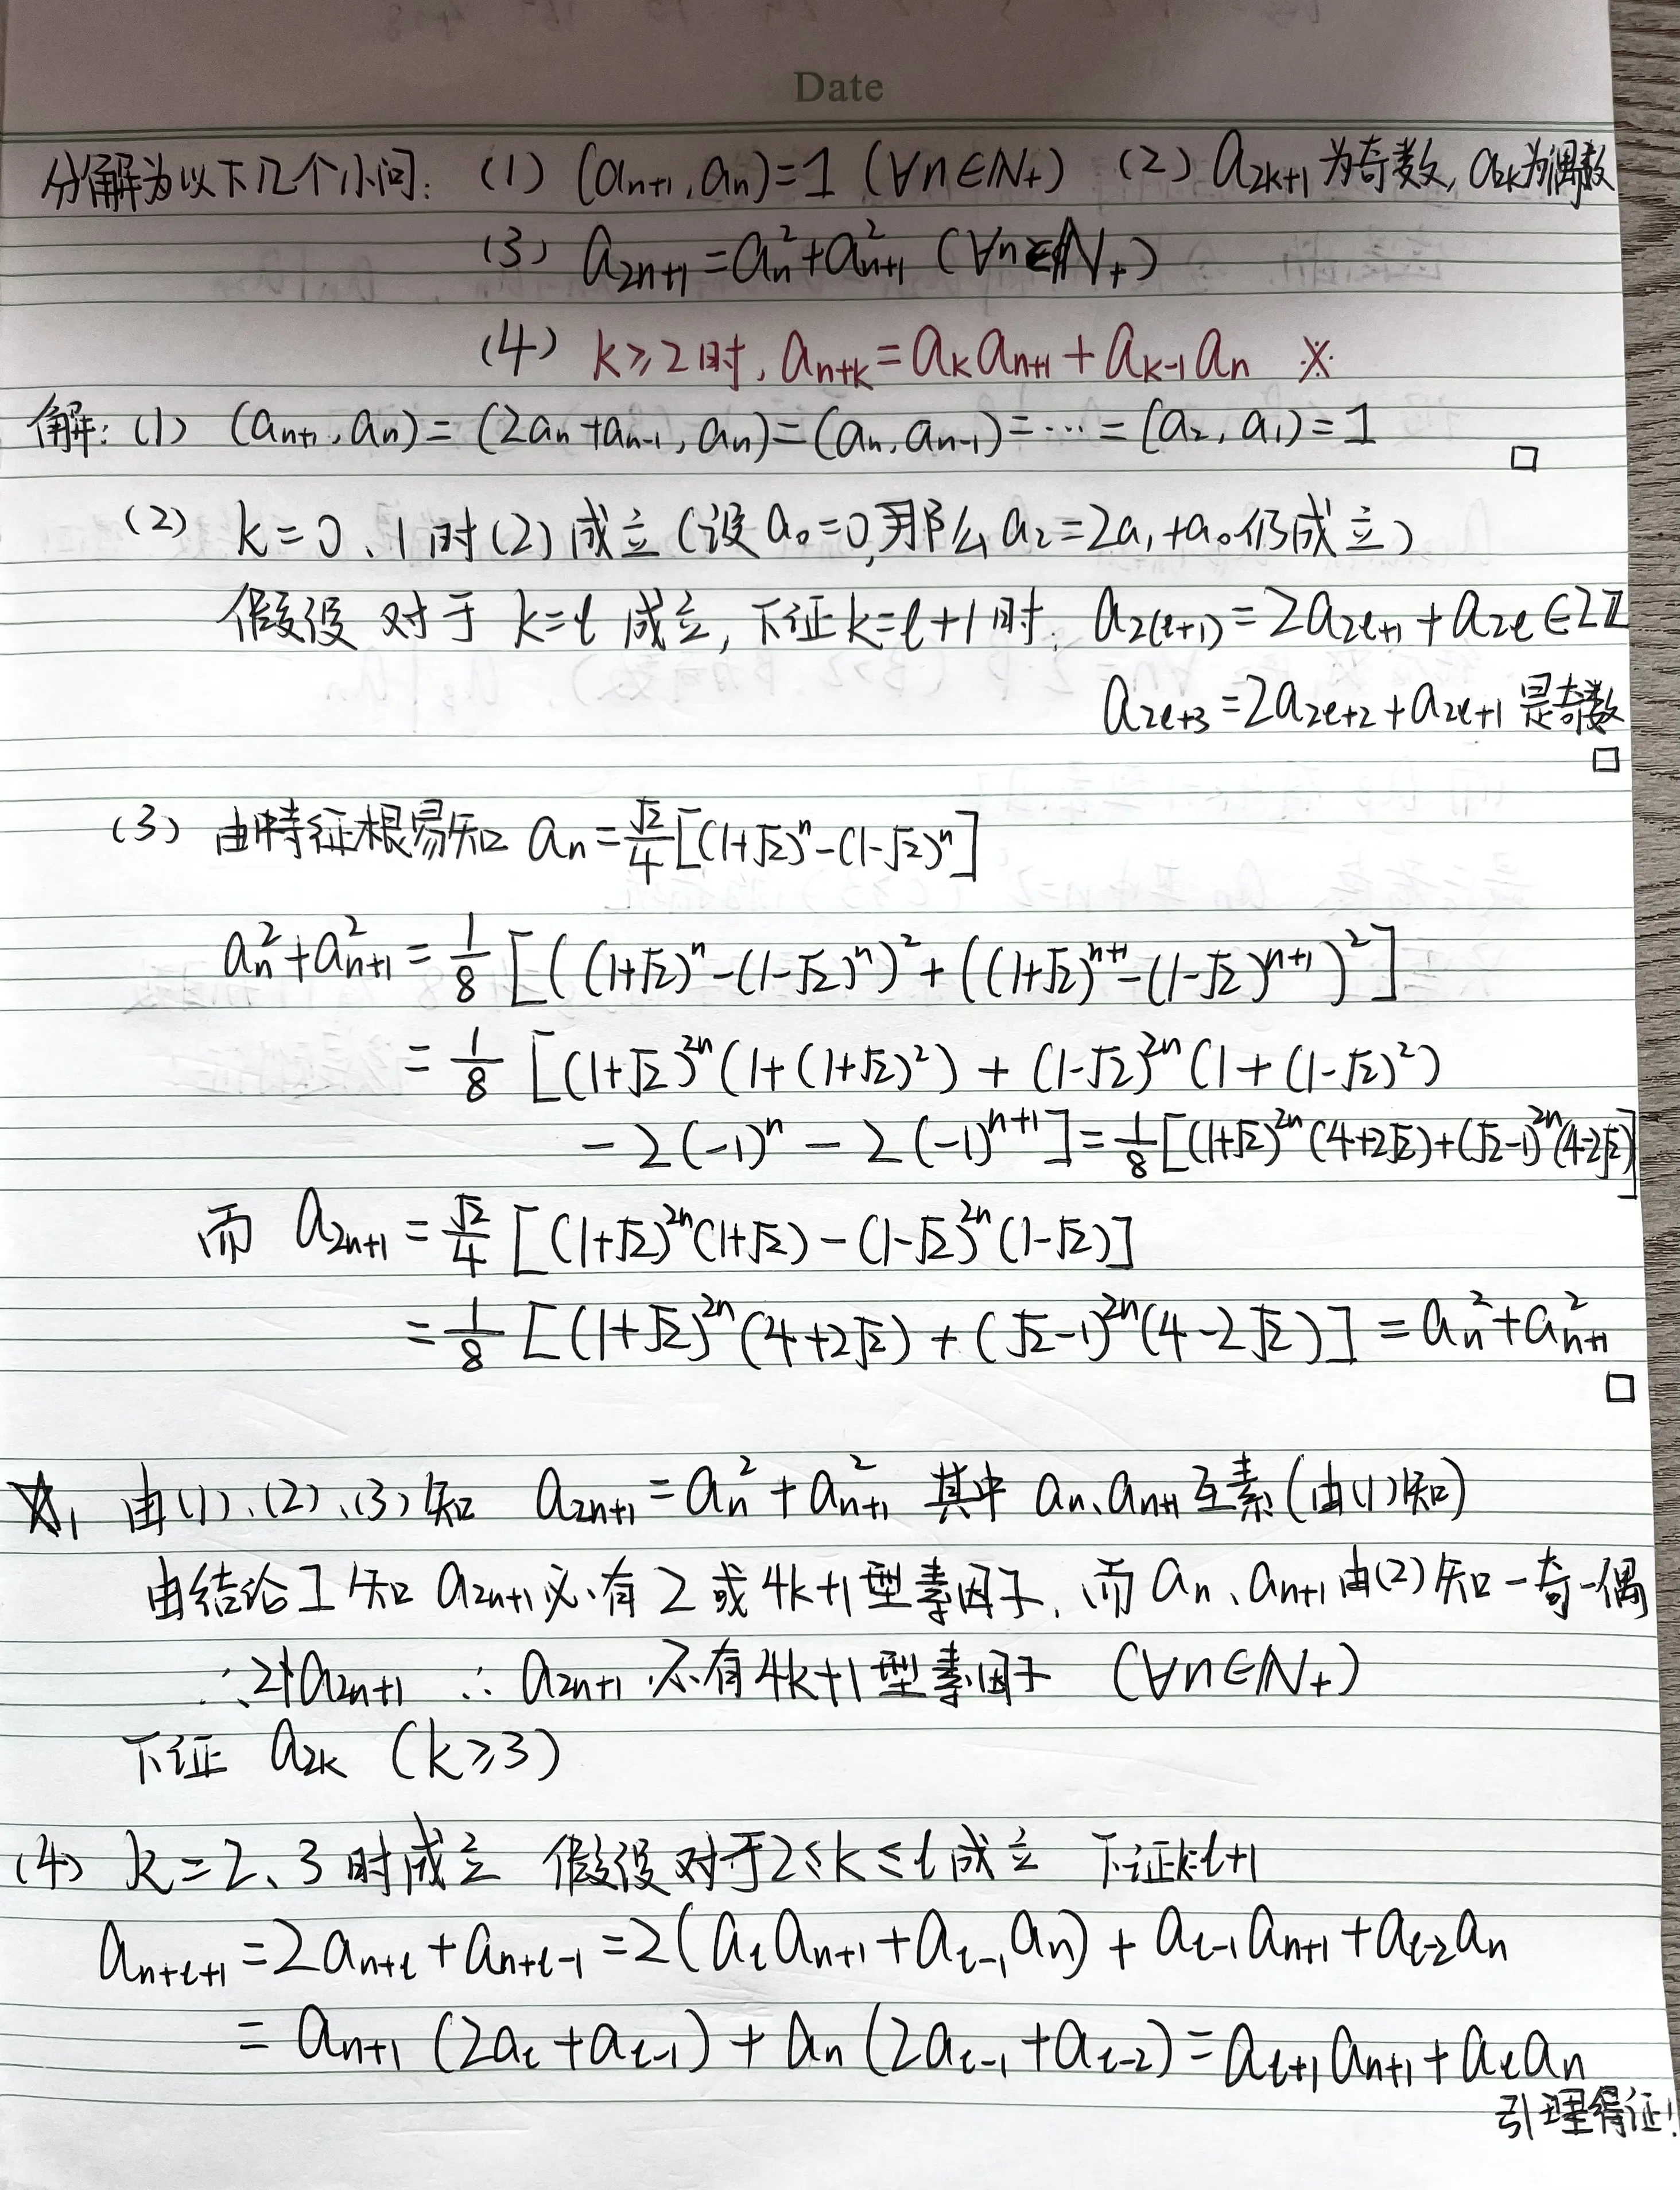 Date
分解为以下几个小问: (1) (aₙ₊₁, aₙ)=1 (∀n∈ℕ₊) (2) a₂ₖ₊₁为奇数, a₂ₖ为偶数
(3) a₂ₙ₊₁=aₙ²+aₙ₊₁² (∀n∈ℕ₊)
(4) k≥2时, aₙ₊ₖ=aₖaₙ₊₁+aₖ₋₁aₙ ※
解: (1) (aₙ₊₁, aₙ)=(2aₙ+aₙ₋₁, aₙ)=(aₙ, aₙ₋₁)=⋯=(a₂, a₁)=1 □
(2) k=0、1时(2)成立(设a₀=0,那么a₂=2a₁+a₀仍成立)
假设对于k=ℓ成立, 下证k=ℓ+1时. a_{2(ℓ+1)}=2a_{2ℓ+1}+a_{2ℓ}∈2ℤ
a_{2ℓ+3}=2a_{2ℓ+2}+a_{2ℓ+1}是奇数
□
(3) 由特征根易知 aₙ=√2/4[(1+√2)ⁿ-(1-√2)ⁿ]
aₙ²+aₙ₊₁²=1/8[((1+√2)ⁿ-(1-√2)ⁿ)²+((1+√2)ⁿ⁺¹-(1-√2)ⁿ⁺¹)²]
=1/8[(1+√2)²ⁿ(1+(1+√2)²)+(1-√2)²ⁿ(1+(1-√2)²)
-2(-1)ⁿ-2(-1)ⁿ⁺¹]=1/8[(1+√2)²ⁿ(4+2√2)+(√2-1)²ⁿ(4-2√2)]
而 a₂ₙ₊₁=√2/4[(1+√2)²ⁿ(1+√2)-(1-√2)²ⁿ(1-√2)]
=1/8[(1+√2)²ⁿ(4+2√2)+(√2-1)²ⁿ(4-2√2)]=aₙ²+aₙ₊₁²
□
☆, 由(1)、(2)、(3)知 a₂ₙ₊₁=aₙ²+aₙ₊₁² 其中 aₙ、aₙ₊₁互素(由(1)知)
由结论I知 a₂ₙ₊₁必有2或4k+1型素因子, 而aₙ、aₙ₊₁由(2)知一奇一偶
∴2∤a₂ₙ₊₁ ∴a₂ₙ₊₁必有4k+1型素因子 (∀n∈ℕ₊)
下证 a₂ₖ (k≥3)
(4) k=2、3时成立 假设对于2≤k≤ℓ成立 下证k=ℓ+1
a_{n+ℓ+1}=2a_{n+ℓ}+a_{n+ℓ-1}=2(a_ℓaₙ₊₁+a_{ℓ-1}aₙ)+a_{ℓ-1}aₙ₊₁+a_{ℓ-2}aₙ
=aₙ₊₁(2a_ℓ+a_{ℓ-1})+aₙ(2a_{ℓ-1}+a_{ℓ-2})=a_{ℓ+1}aₙ₊₁+a_ℓaₙ
引理得证!